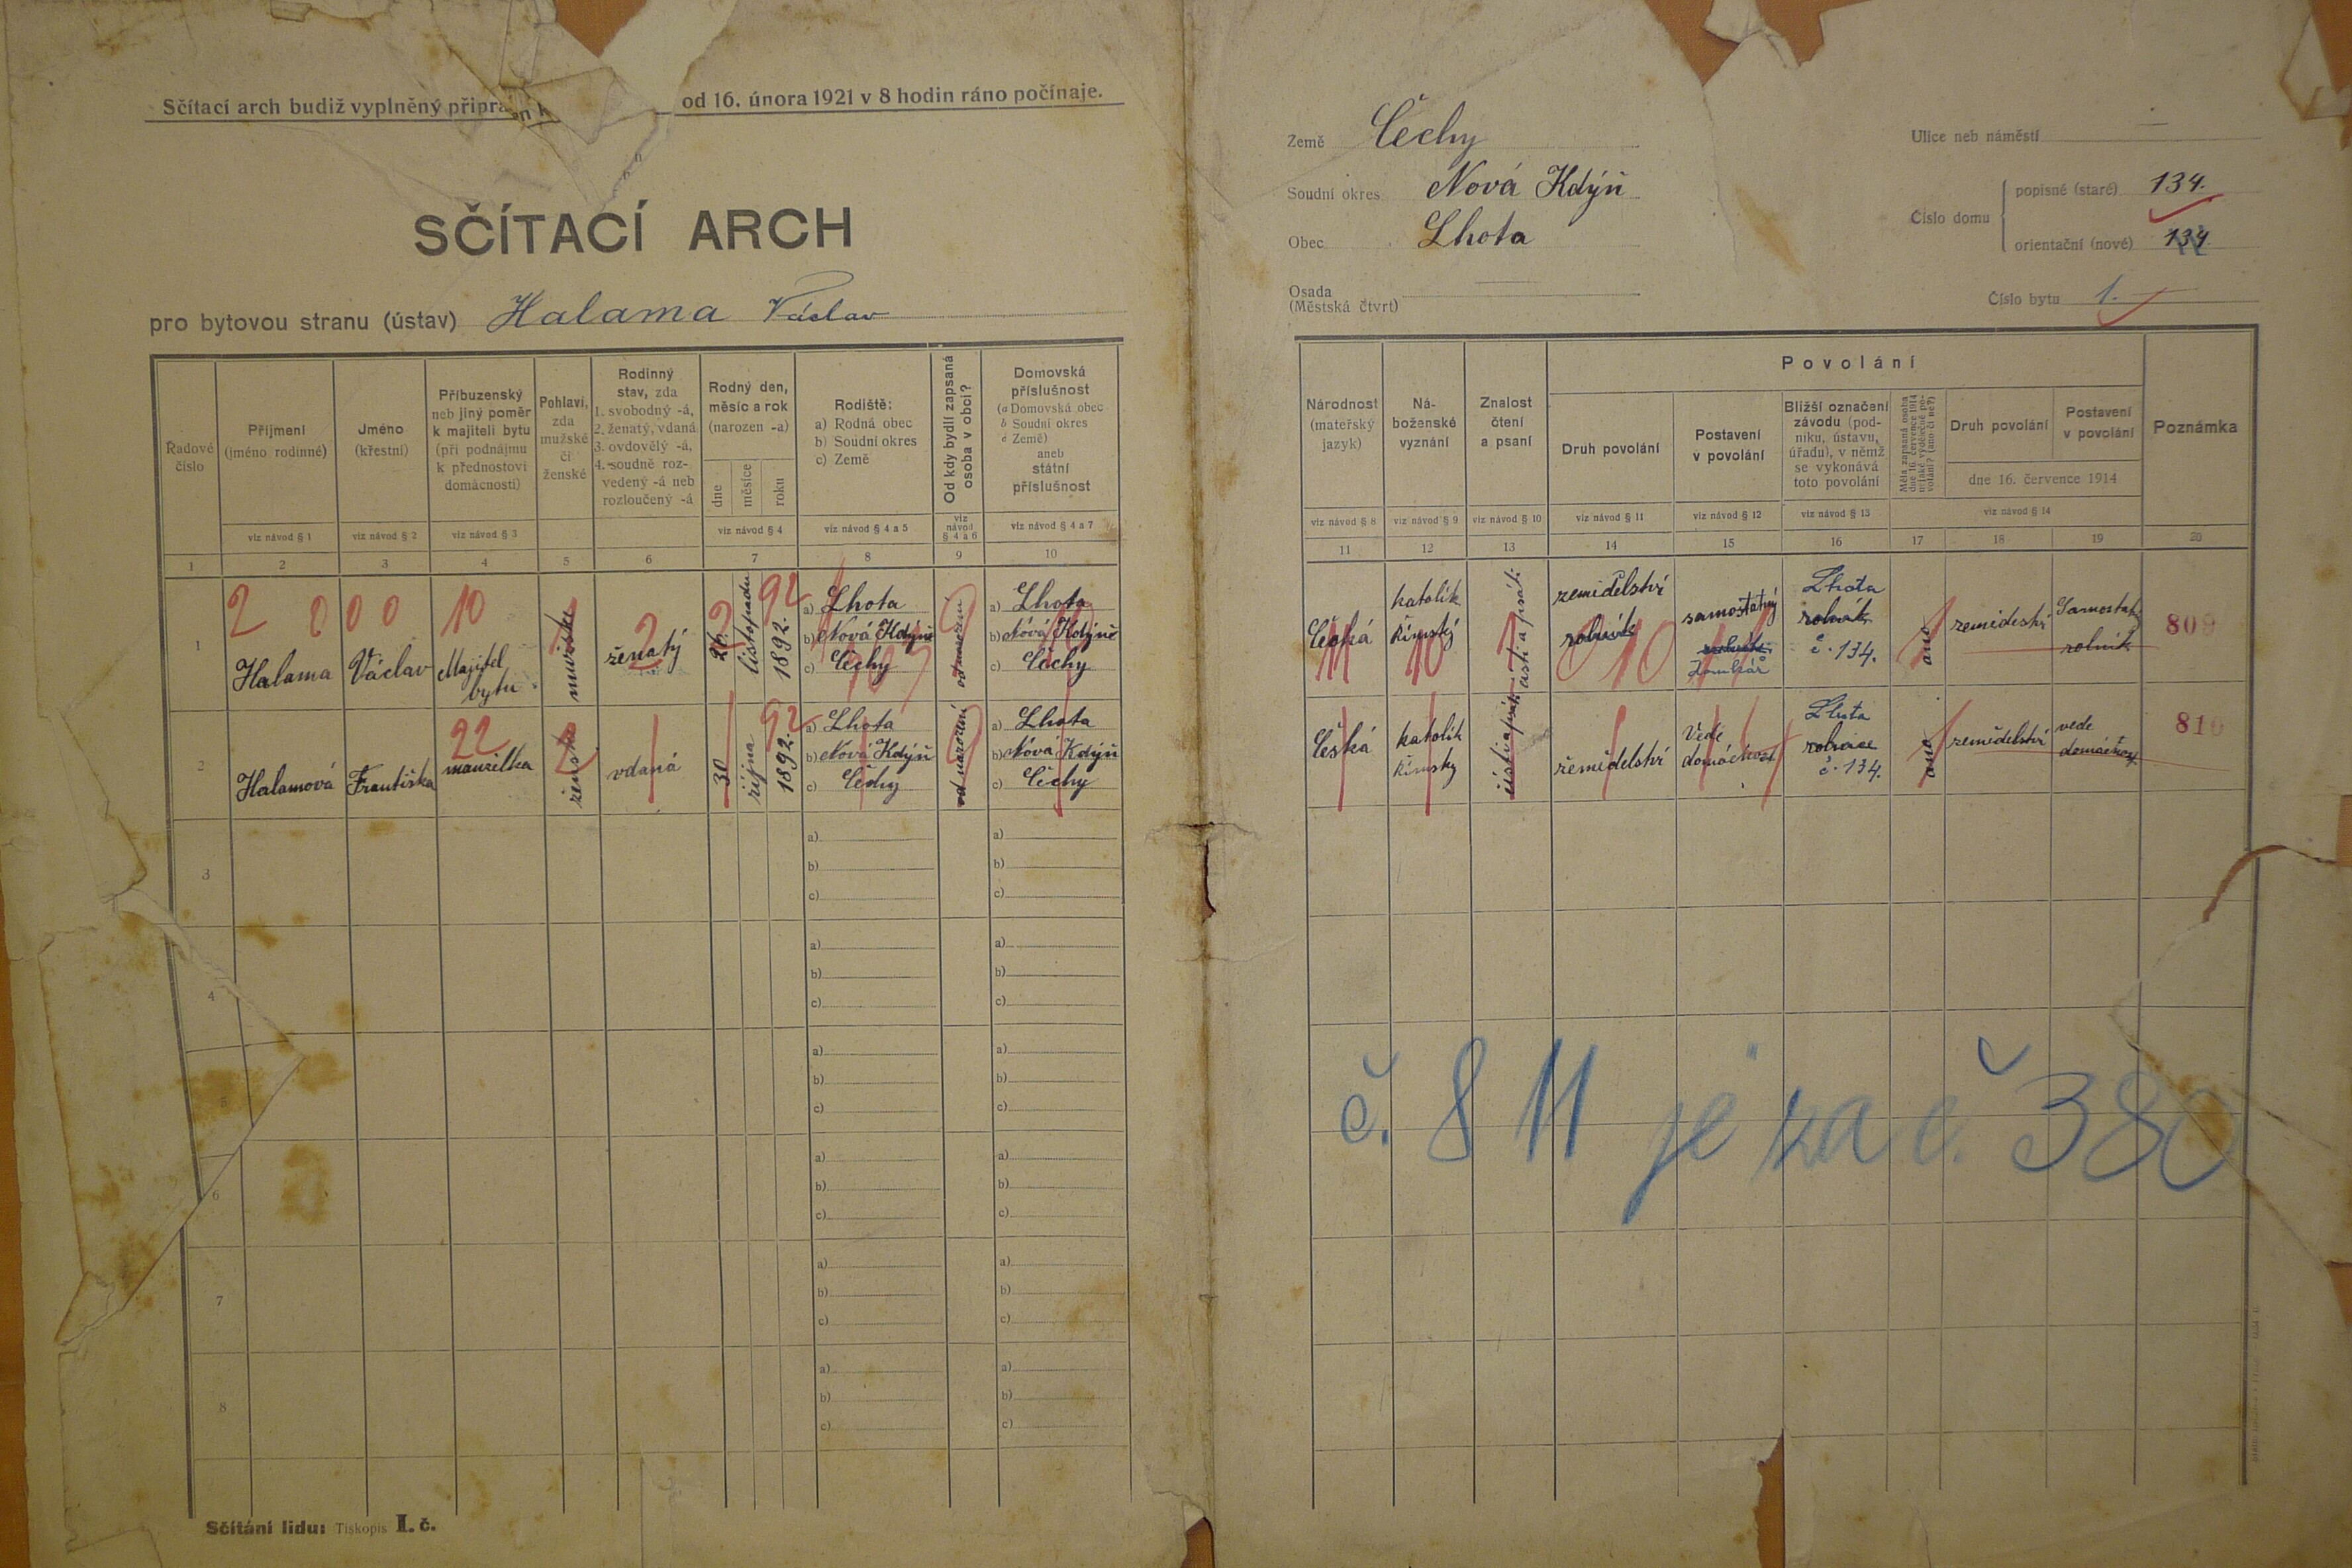 Sčítací arch budiž vyplněný od 16. února 1921 v 8 hodin ráno počínaje.
SČÍTACÍ ARCH
pro bytovou stranu (ústav) Halama Václav
Řadové číslo
Příjmení (jméno rodinné)
Jméno (křestní)
Příbuzenský neb jiný poměr k majiteli bytu (při podnájmu k přednostovi domácnosti)
Pohlaví, zda mužské či ženské
Rodinný stav, zda
1. svobodný -á,
2. ženatý, vdaná
3. ovdovělý -á,
4. soudně rozvedený -á neb rozloučený -á
Rodný den, měsíc a rok (narozen -a)
dne
měsíce
roku
Rodiště:
a) Rodná obec
b) Soudní okres
c) Země
Od kdy bydlí zapsaná osoba v obci?
Domovská příslušnost
(a Domovská obec
b Soudní okres
c Země)
aneb
státní příslušnost
viz návod § 1
viz návod § 2
viz návod § 3
viz návod § 4
viz návod § 4 a 5
viz návod § 4 a 6
viz návod § 4 a 7
1 2 3 4 5 6 7 8 9 10
2 0 0 0 10 2 2 92
1
Halama
Václav
Majitel bytu
mužské
ženatý
26.
listopadu
1892.
a) Lhota
b) Nová Kdýně
c) Čechy
od narození
a) Lhota
b) Nová Kdýně
c) Čechy
22 2 92
2
Halamová
Františka
manželka
ženské
vdaná
30
října
1892.
a) Lhota
b) Nová Kdýň
c) Čechy
od narození
a) Lhota
b) Nová Kdýň
c) Čechy
3
a) a)
b) b)
c) c)
4
a) a)
b) b)
c) c)
5
a) a)
b) b)
c) c)
6
a) a)
b) b)
c) c)
7
a) a)
b) b)
c) c)
8
a) a)
b) b)
c) c)
Sčítání lidu: Tiskopis I. č.
Země Čechy
Soudní okres Nová Kdýň
Obec Lhota
Osada
(Městská čtvrť)
Ulice neb náměstí —
Číslo domu
popisné (staré) 134.
orientační (nové) 134
Číslo bytu 1.
Národnost (mateřský jazyk)
Náboženské vyznání
Znalost čtení a psaní
Povolání
Druh povolání
Postavení v povolání
Bližší označení závodu (podniku, ústavu, úřadu), v němž se vykonává toto povolání
Měla zapsaná osoba dne 16. července 1914 nějaké výdělečné povolání? (ano či ne?)
Druh povolání
Postavení v povolání
dne 16. července 1914
Poznámka
viz návod § 8
viz návod § 9
viz návod § 10
viz návod § 11
viz návod § 12
viz návod § 13
viz návod § 14
11 12 13 14 15 16 17 18 19 20
Česká
katolík
Římský
čísti a psáti
zemědělství
rolník
samostatný
Domkář
Lhota
rolník
č. 134.
ano
zemědeství
Samostatný
rolník
809
11 10 1 0 10 11
Česká
katolík
Římsky
čisti a psáti
zemědelství
Vede
domácnost
Lhota
rolnice
č. 134.
ano
zemědelství
vede
domácnost
810
č. 811 je za č. 380